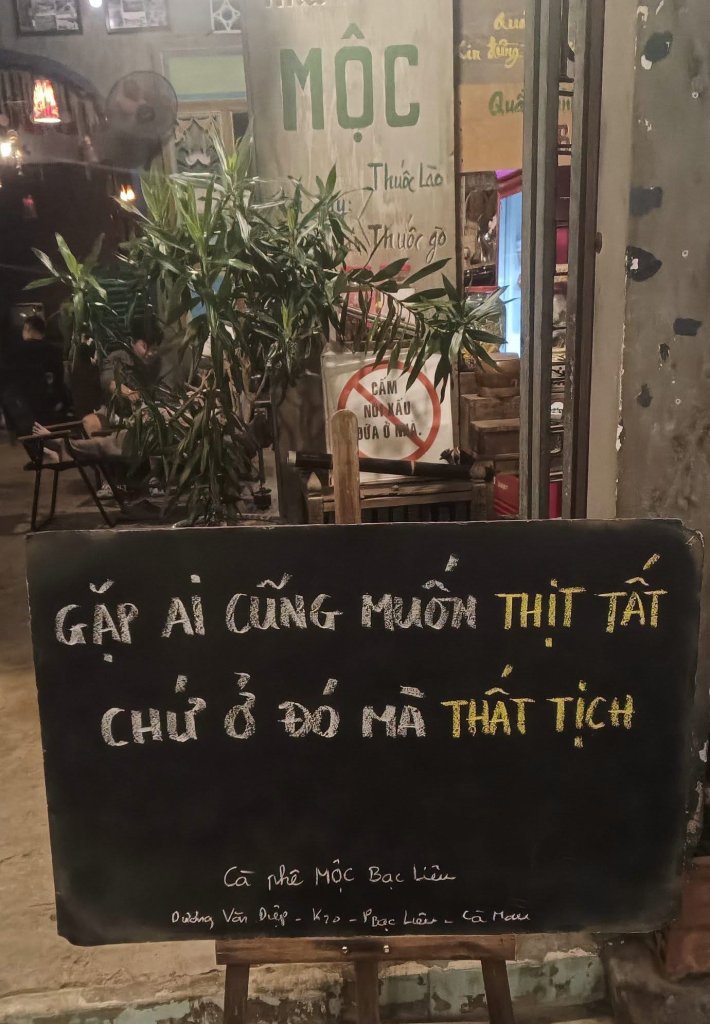 MỘC
Thuốc Lào
Thuốc gò
CẤM
NÓI XẤU
ĐỨA Ở NHÀ.
GẶP AI CŨNG MUỐN THỊT TẤT
CHỨ Ở ĐÓ MÀ THẤT TỊCH
Cà phê MỘC Bạc Liêu
Dương Văn Diệp - K20 - P Bạc Liêu - Cà Mau